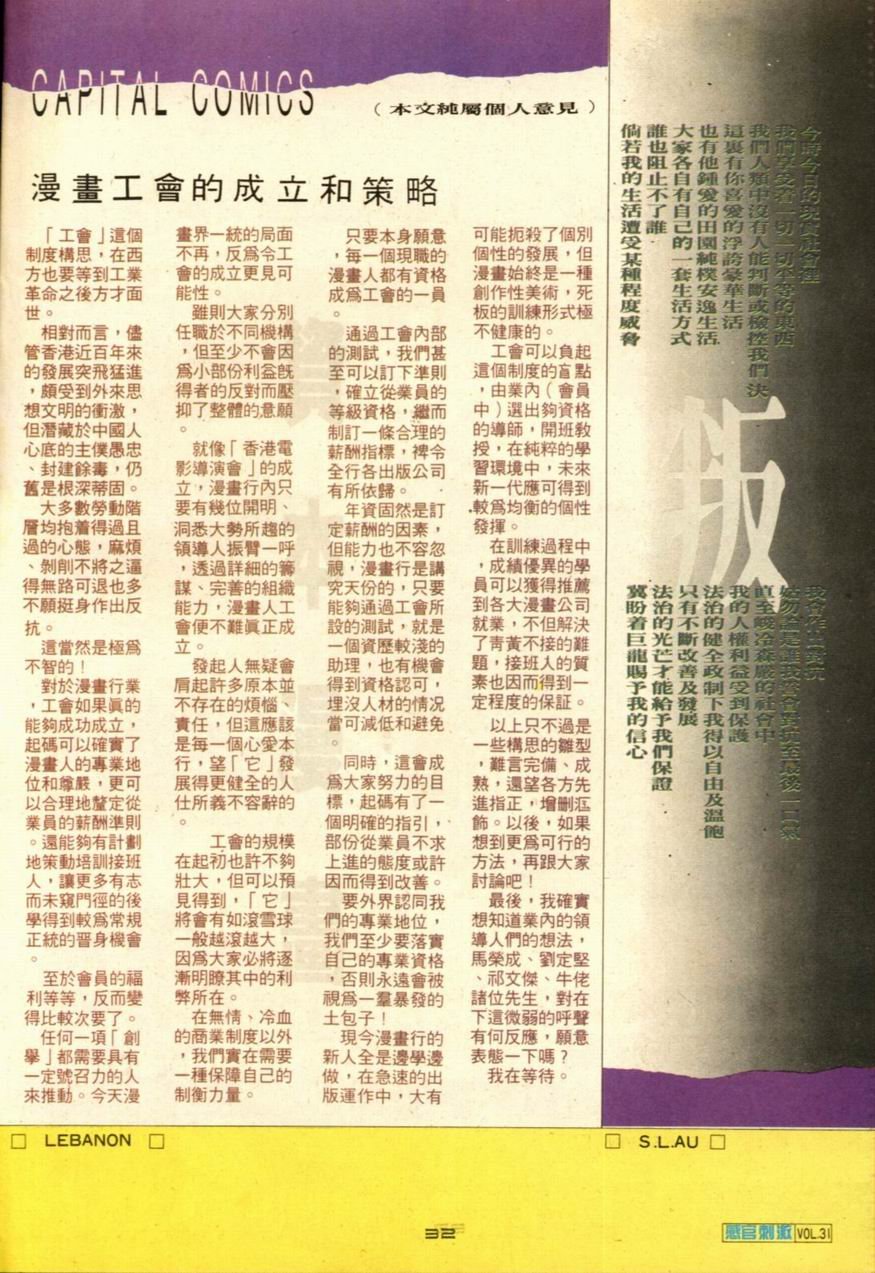 CAPITAL COMICS
（本文純屬個人意見）
漫畫工會的成立和策略
「工會」這個
制度構思，在西
方也要等到工業
革命之後方才面
世。
相對而言，儘
管香港近百年來
的發展突飛猛進
，頗受到外來思
想文明的衝激，
但潛藏於中國人
心底的主僕愚忠
、封建餘毒，仍
舊是根深蒂固。
大多數勞動階
層均抱着得過且
過的心態，麻煩
、剝削不將之逼
得無路可退也多
不願挺身作出反
抗。
這當然是極爲
不智的！
對於漫畫行業
，工會如果眞的
能夠成功成立，
起碼可以確實了
漫畫人的專業地
位和尊嚴，更可
以合理地釐定從
業員的薪酬準則
。還能夠有計劃
地策動培訓接班
人，讓更多有志
而未窺門徑的後
學得到較爲常規
正統的晉身機會
。
至於會員的福
利等等，反而變
得比較次要了。
任何一項「創
擧」都需要具有
一定號召力的人
來推動。今天漫
畫界一統的局面
不再，反爲令工
會的成立更見可
能性。
雖則大家分別
任職於不同機構
，但至少不會因
爲小部份利益旣
得者的反對而壓
抑了整體的意願
。
就像「香港電
影導演會」的成
立，漫畫行內只
要有幾位開明、
洞悉大勢所趨的
領導人振臂一呼
，透過詳細的籌
謀、完善的組織
能力，漫畫人工
會便不難眞正成
立。
發起人無疑會
肩起許多原本並
不存在的煩惱、
責任，但這應該
是每一個心愛本
行，望「它」發
展得更健全的人
仕所義不容辭的
。
工會的規模
在起初也許不夠
壯大，但可以預
見得到，「它」
將會有如滾雪球
一般越滾越大，
因爲大家必將逐
漸明瞭其中的利
弊所在。
在無情、冷血
的商業制度以外
，我們實在需要
一種保障自己的
制衡力量。
只要本身願意
，每一個現職的
漫畫人都有資格
成爲工會的一員
。
通過工會內部
的測試，我們甚
至可以訂下準則
，確立從業員的
等級資格，繼而
制訂一條合理的
薪酬指標，裨令
全行各出版公司
有所依歸。
年資固然是訂
定薪酬的因素，
但能力也不容忽
視，漫畫行是講
究天份的，只要
能夠通過工會所
設的測試，就是
一個資歷較淺的
助理，也有機會
得到資格認可，
埋沒人材的情況
當可減低和避免
。
同時，這會成
爲大家努力的目
標，起碼有了一
個明確的指引，
部份從業員不求
上進的態度或許
因而得到改善。
要外界認同我
們的專業地位，
我們至少要落實
自己的專業資格
，否則永遠會被
視爲一羣暴發的
土包子！
現今漫畫行的
新人全是邊學邊
做，在急速的出
版運作中，大有
可能扼殺了個別
個性的發展，但
漫畫始終是一種
創作性美術，死
板的訓練形式極
不健康的。
工會可以負起
這個制度的盲點
，由業內（會員
中）選出夠資格
的導師，開班敎
授，在純粹的學
習環境中，未來
新一代應可得到
較爲均衡的個性
發揮。
在訓練過程中
，成績優異的學
員可以獲得推薦
到各大漫畫公司
就業，不但解決
了靑黃不接的難
題，接班人的質
素也因而得到一
定程度的保証。
以上只不過是
一些構思的雛型
，難言完備、成
熟，還望各方先
進指正，增删滙
飾。以後，如果
想到更爲可行的
方法，再跟大家
討論吧！
最後，我確實
想知道業內的領
導人們的想法，
馬榮成、劉定堅
、祁文傑、牛佬
諸位先生，對在
下這微弱的呼聲
有何反應，願意
表態一下嗎？
我在等待。
資本漫畫
今時今日的現實社會裡
我們享受着一切一切平等的東西
我們人類中沒有人能判斷或檢控我們 決
這裏有你喜愛的浮誇豪華生活
也有他鍾愛的田園純樸安逸生活
大家各自有自己的一套生活方式
誰也阻止不了誰
倘若我的生活遭受某種程度威脅
叛
我會作出對抗
姑勿論是誰我誓會對抗至最後一口氣
直至峻冷森嚴的社會中
我的人權利益受到保護
法治的健全政制下我得以自由及溫飽
只有不斷改善及發展
法治的光芒才能給予我們保證
冀盼着巨龍賜予我的信心
□ LEBANON □
□ S.L.AU □
32
感官刺激 VOL.31